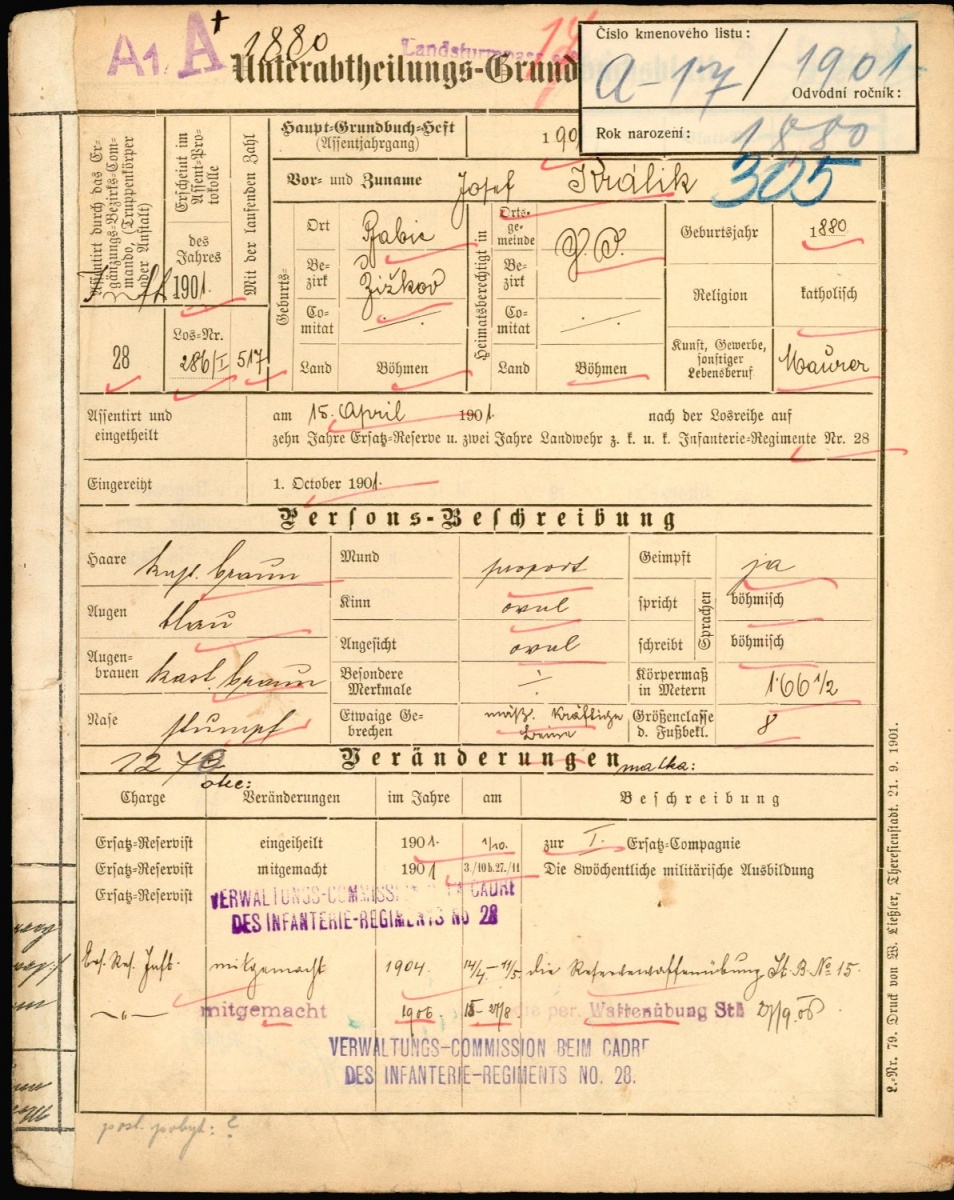 A1. A+ 1880
Landsturm
Unterabtheilungs-Grund
Číslo kmenového listu:
A-17/1901
Odvodní ročník:
Rok narození: 1880
305
Assentirt durch das Ergänzungs-Bezirks-Commando, (Truppenkörper oder Anstalt)
28
Erscheint im Assent-Protokolle
des Jahres
1901.
Los-Nr.
286/I
Mit der laufenden Zahl
517
Haupt-Grundbuch-Heft
(Assentjahrgang)
190
Vor- und Zuname Josef Králik
Geburts-
Ort Babic
Bezirk Žižkov
Comitat
Land Böhmen
Heimatsberechtigt in
Ortsgemeinde
Bezirk
Comitat
Land Böhmen
Geburtsjahr 1880
Religion katholisch
Kunst, Gewerbe, sonstiger Lebensberuf Maurer
Assentirt und eingetheilt
am 15. April 1901. nach der Losreihe auf
zehn Jahre Ersatz-Reserve u. zwei Jahre Landwehr z. k. u. k. Infanterie-Regimente Nr. 28
Eingereiht 1. October 1901.
Persons-Beschreibung
Haare braun
Augen blau
Augenbrauen kast. braun
Nase stumpf
Mund proport
Kinn oval
Angesicht oval
Besondere Merkmale ÷
Etwaige Gebrechen mäß. kräftige Beine
Geimpft ja
Sprachen
spricht böhmisch
schreibt böhmisch
Körpermaß in Metern 1·66 1/2
Größenclasse d. Fußbekl. 8
Veränderungen
otec: matka:
Charge Veränderungen im Jahre am Beschreibung
Ersatz-Reservist eingeiheilt 1901. 1/10. zur I. Ersatz-Compagnie
Ersatz-Reservist mitgemacht 1901 3./10 b. 27./11 Die 8wöchentliche militärische Ausbildung
Ersatz-Reservist
VERWALTUNGS-COMMISS CADRE
DES INFANTERIE-REGIMENTS No 28
Ers. Res. Inft. mitgemacht 1904. 14/4 – 11/5 die Reservewaffenübung St. B. No 15.
mitgemacht 1906. 15 – 27/8 die per. Waffenübung StB 27/9.06
VERWALTUNGS-COMMISSION BEIM CADRE
DES INFANTERIE-REGIMENTS NO. 28.
posl. pobyt: ?
L.-Nr. 79. Druck von W. Ließler, Theresienstadt. 21. 9. 1901.